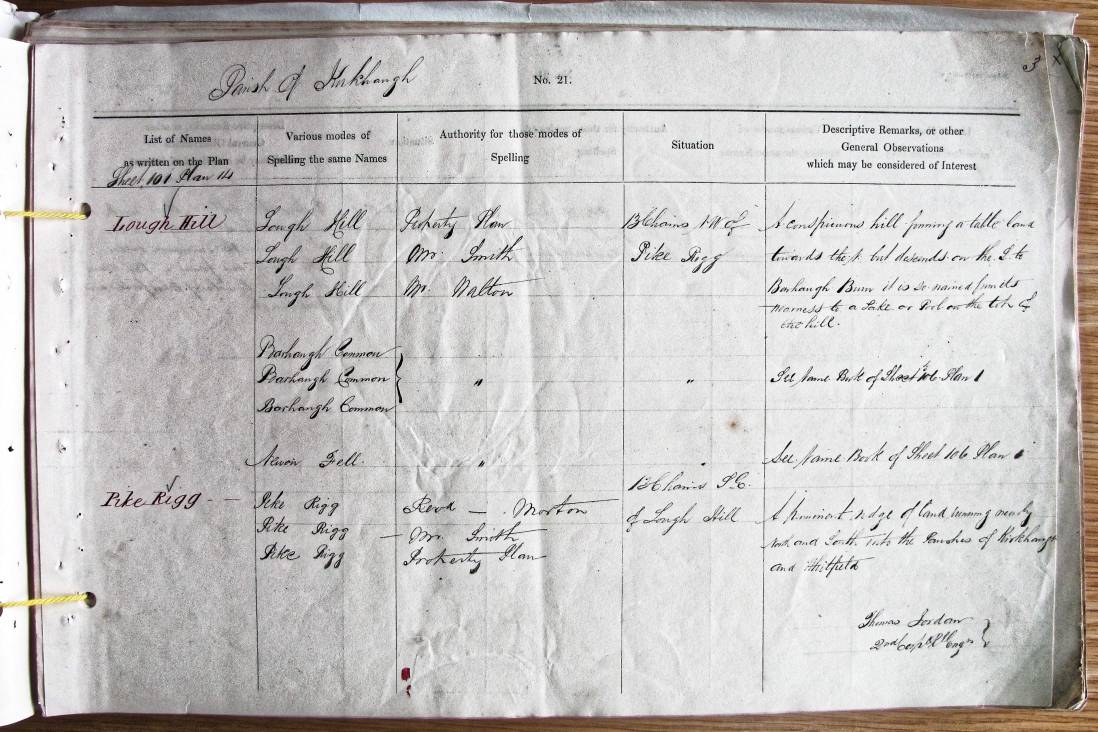 Parish of Kirkhaugh
No. 21.
3 X
List of Names
as written on the Plan
Various modes of
Spelling the same Names
Authority for those modes of
Spelling
Situation
Descriptive Remarks, or other
General Observations
which may be considered of Interest
Sheet 101 Plan 14
Lough Hill
Lough Hill
Lough Hill
Lough Hill
Property Plan
Mr. Smith
Mr. Walton
13 Chains N.W. of
Pike Rigg
A conspicuous hill forming a table land
towards the but descends on the E to
Barhaugh Burn it is so named from its
nearness to a Lake or Pool on the top of
the hill.
Barhaugh Common
Barhaugh Common
Barhaugh Common
"
"
See Name Book of Sheet 106 Plan 1
Fell.
"
"
See Name Book of Sheet 106 Plan 1
Pike Rigg
Pike Rigg
Pike Rigg
Pike Rigg
Revd — Morton
Mr. Smith
Property Plan
13 Chains S.E.
of Lough Hill
A Prominent ridge of land running nearly
North and South into the Parishes of Kirkhaugh
and Whitfield
Thomas Jordan
2nd Corpl. Rl. Engrs